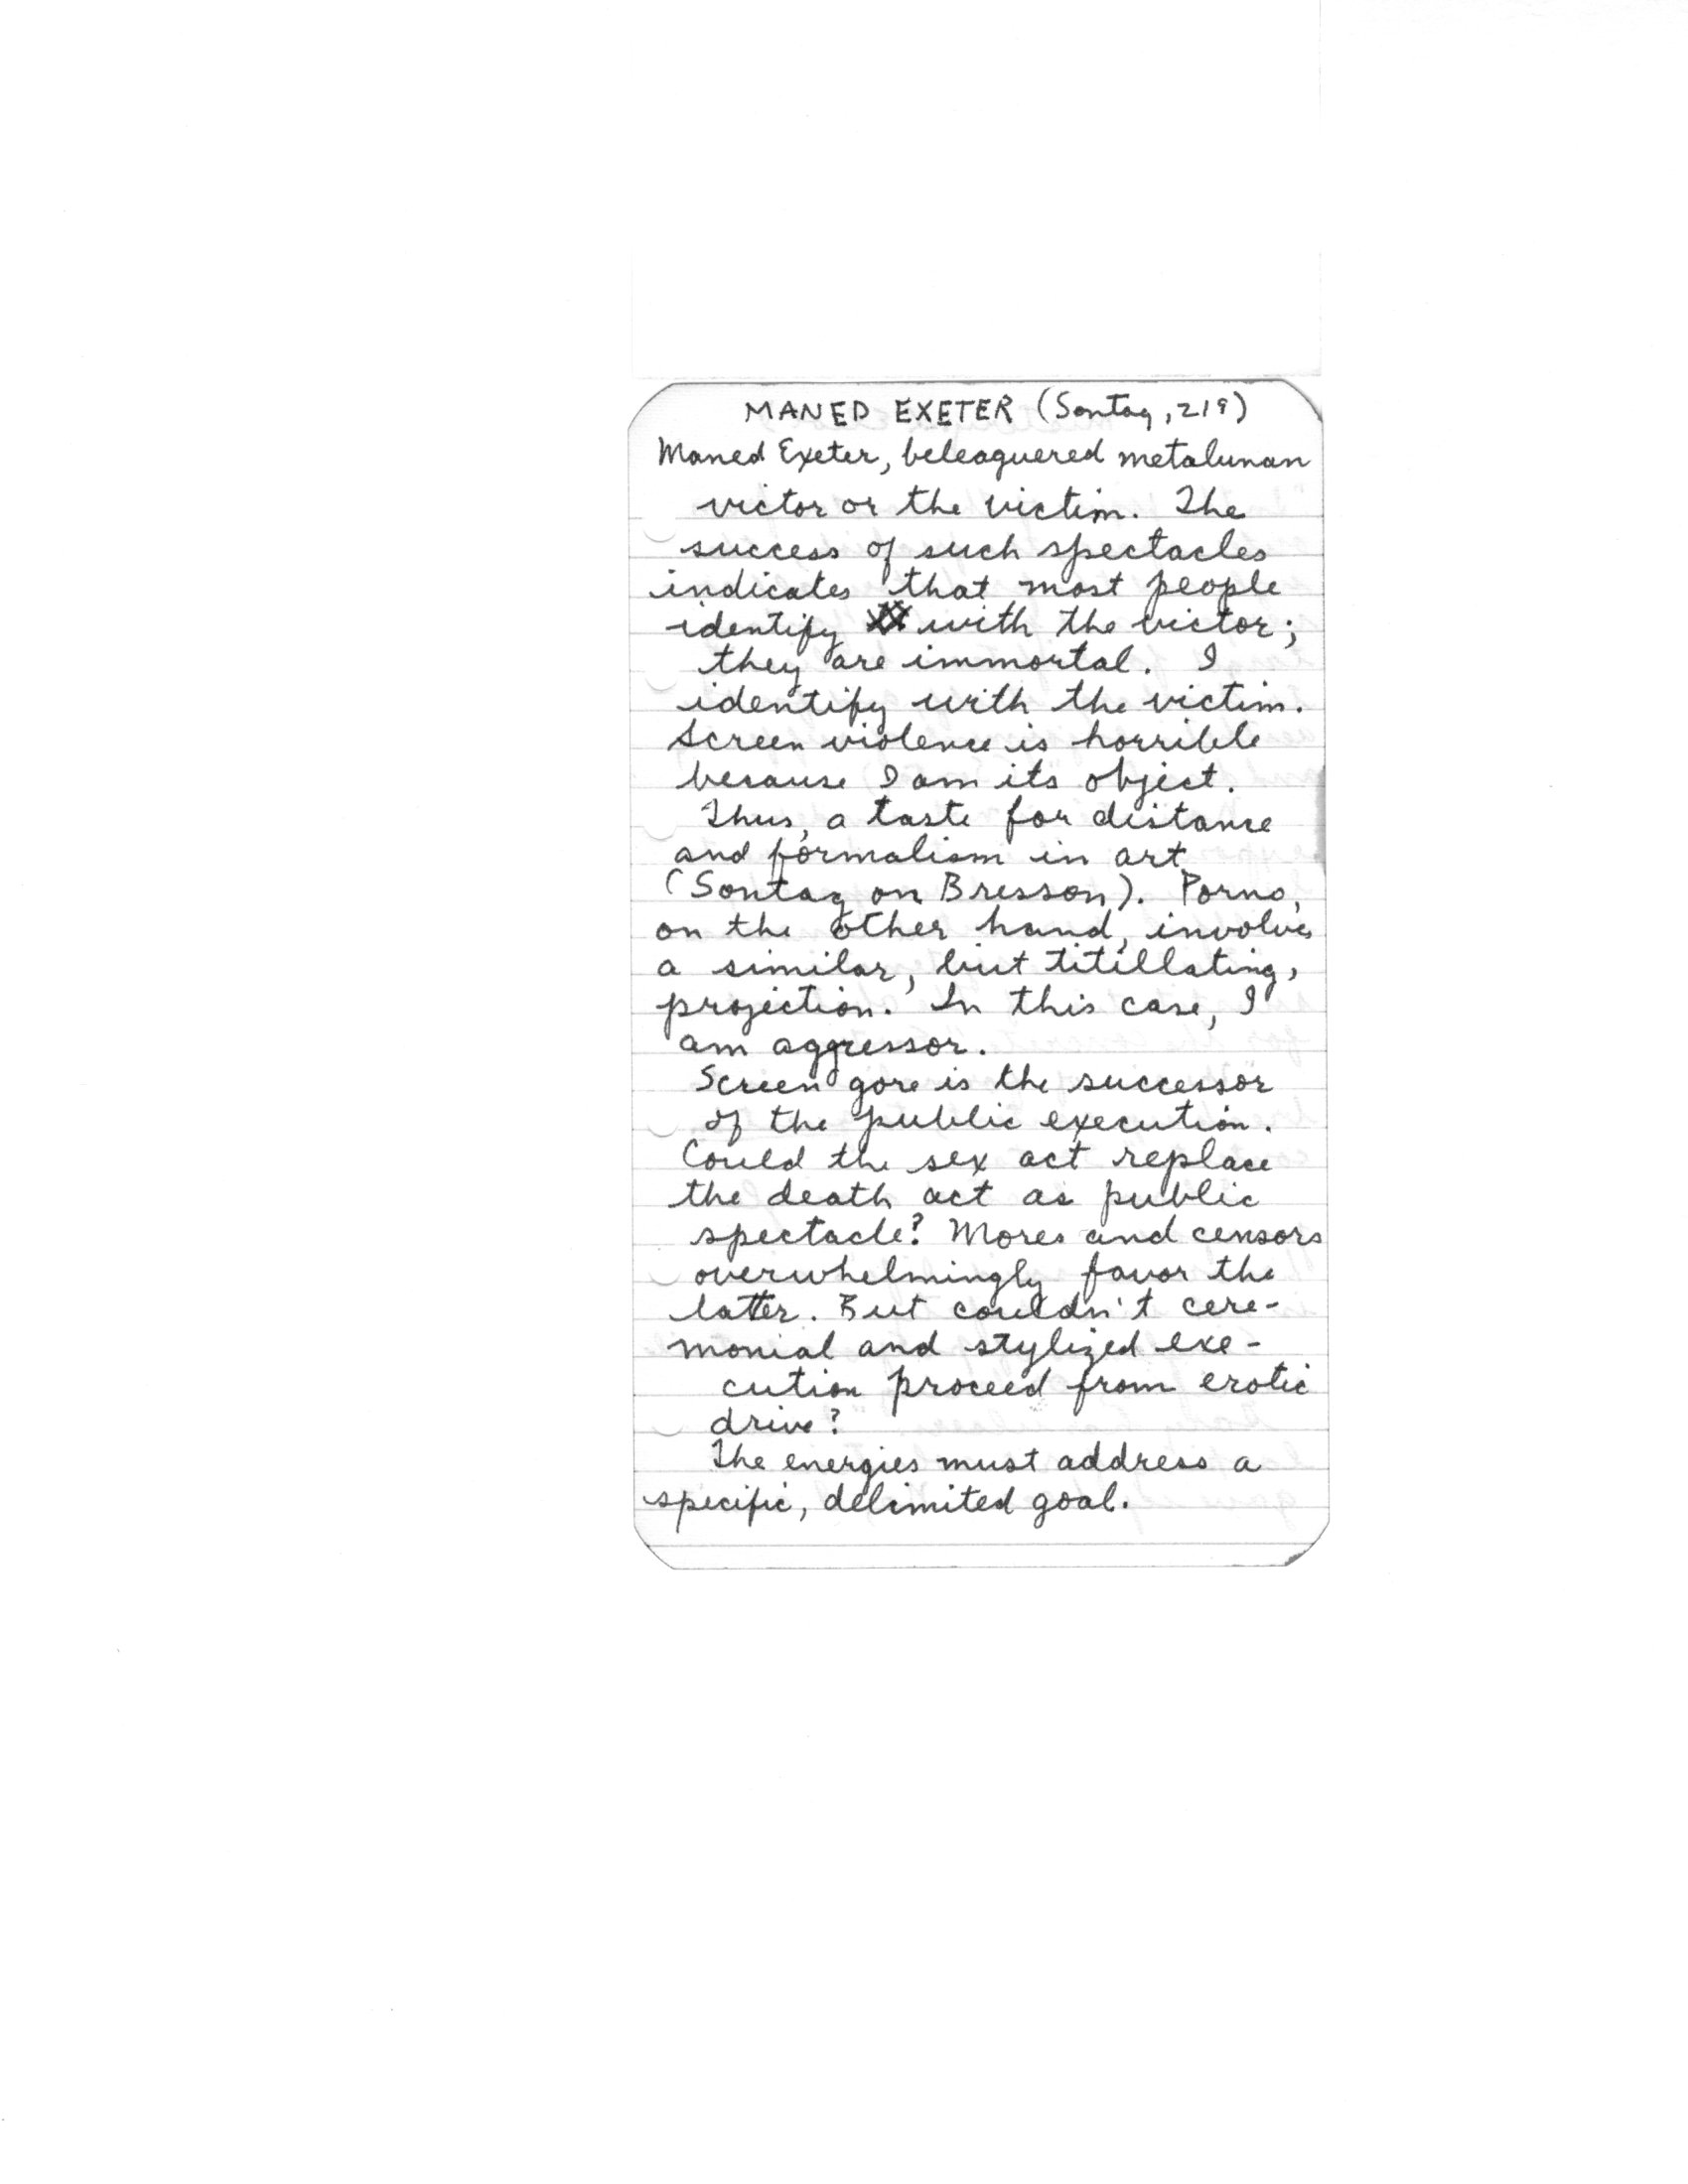 MANED EXETER (Sontag, 219)
Maned Exeter, beleaguered metalunan
victor or the victim. The
success of such spectacles
indicates that most people
identify with the victor;
they are immortal. I
identify with the victim.
Screen violence is horrible
because I am its object.
Thus, a taste for distance
and formalism in art
(Sontag on Bresson). Porno,
on the other hand, involves
a similar, but titillating,
projection. In this case, I
am aggressor.
Screen gore is the successor
of the public execution.
Could the sex act replace
the death act as public
spectacle? Mores and censors
overwhelmingly favor the
latter. But couldn't cere-
monial and stylized exe-
cution proceed from erotic
drive?
The energies must address a
specific, delimited goal.